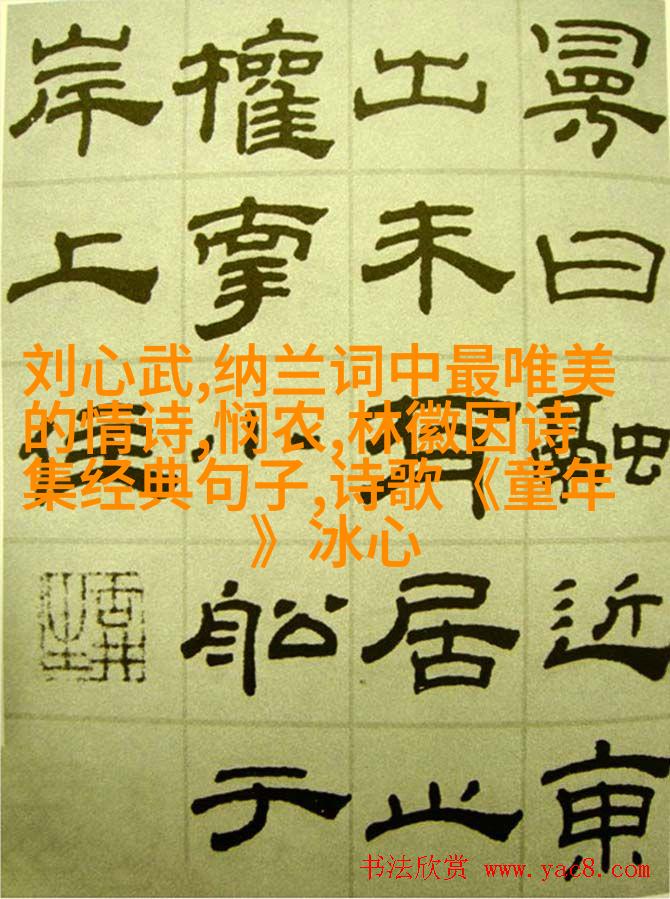 曰融近東
出未有居止
權小舩于
岸上住
刘心武,纳兰词中最唯美
的情诗,悯农,林徽因诗
集经典句子,诗歌《童年
》冰心
书法欣赏 www.yac8.com